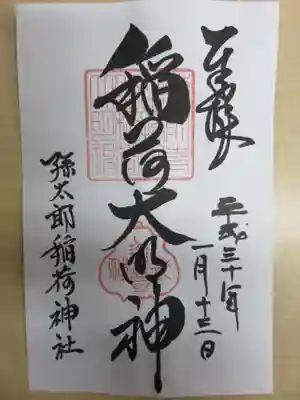 奉拝
平成三十年
一月十三日
稲荷大明神
孫太郎稲荷神社